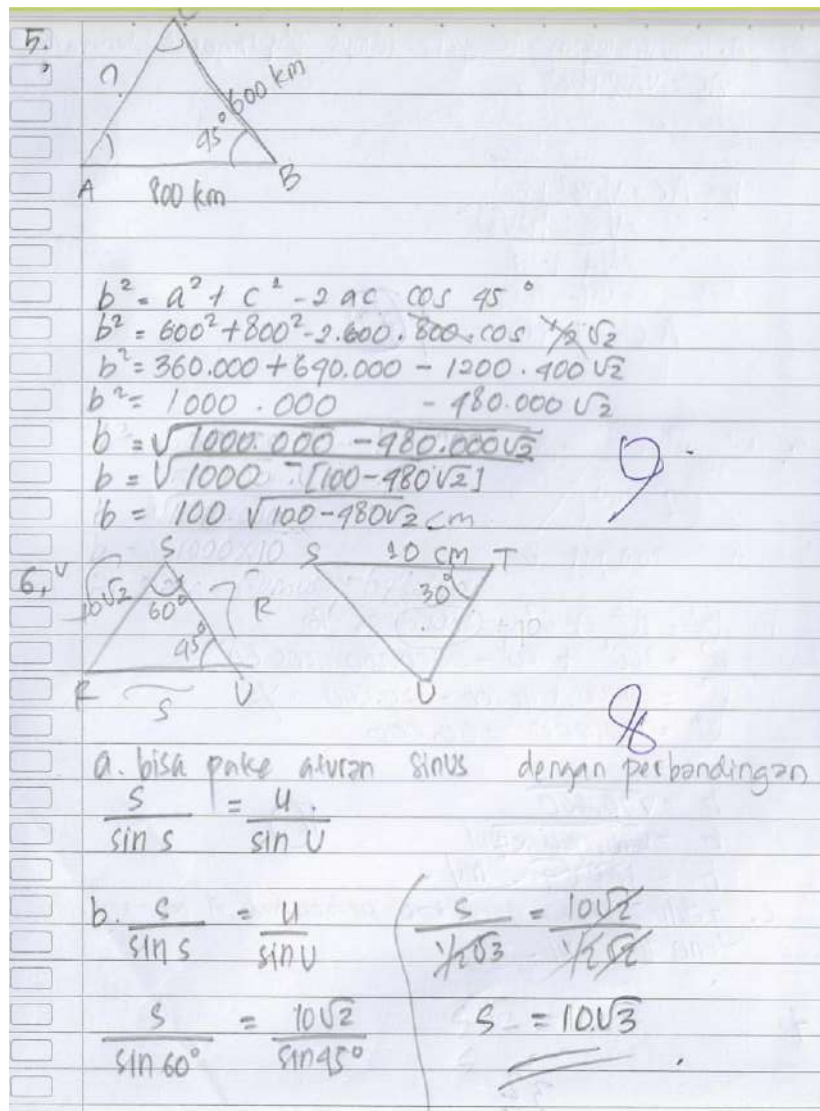 5.
C
?
600 km
45°
A
800 km
B
b² = a² + c² - 2 ac cos 45°
b² = 600² + 800² - 2.600.800.cos 1/2 √2
b² = 360.000 + 640.000 - 1200.400√2
b² = 1000.000 - 480.000 √2
b = √1000.000 - 480.000√2
b = √1000 - [100-480√2]
b = 100 √100-480√2 cm
9
6.
S
10√2
60°
R
45°
R
S
U
S
10 cm
T
30°
U
8
a. bisa pake aturan sinus dengan perbandingan
s/sin s = u/sin U
b. s/sin s = u/sin U
s/sin 60° = 10√2/sin 45°
s/1/2√3 = 10√2/1/2√2
s = 10√3